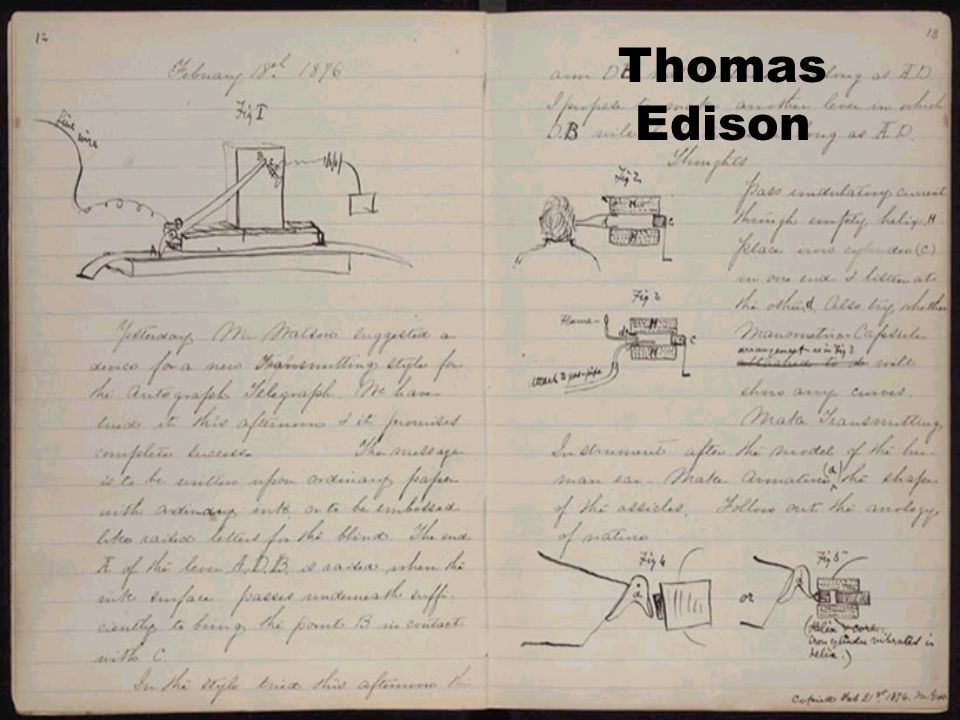 12
February 18th 1876
Fig 1
Line wire
B
A
Yesterday Mr Watson suggested a
device for a new Transmitting style for
the Autograph Telegraph. We have
tried it this afternoon & it promises
complete success. The message
is to be written upon ordinary paper
with ordinary ink or to be embossed
like raised letters for the blind. The end
A of the lever A.D.B. is raised when the
ink surface passes underneath suffi-
ciently to bring the point B in contact
with C.
In the style tried this afternoon the
13
Thomas
Edison
arm D long as A.D.
I propose to make another lever in which
D.B long as A.D.
Thoughts
Fig 2
H
C
H
Pass undulating current
through empty helix H
place iron cylinder (C)
in one end & listen at
the other d. Also try whether
Manometric Capsule
arrangement as in Fig 3
attached to d will
show any curves.
Fig 3
Flame
d
H
C
H
attach to gas-pipe
Make Transmitting
Instrument after the model of the hu-
man ear. Make armature (a) the shape
of the ossicles. Follow out the analogy
of nature
Fig 4
a
or
Fig 5
a
(Helix & core.
Iron cylinder vibrated in
helix.)
Copied Feb 21st 1876.